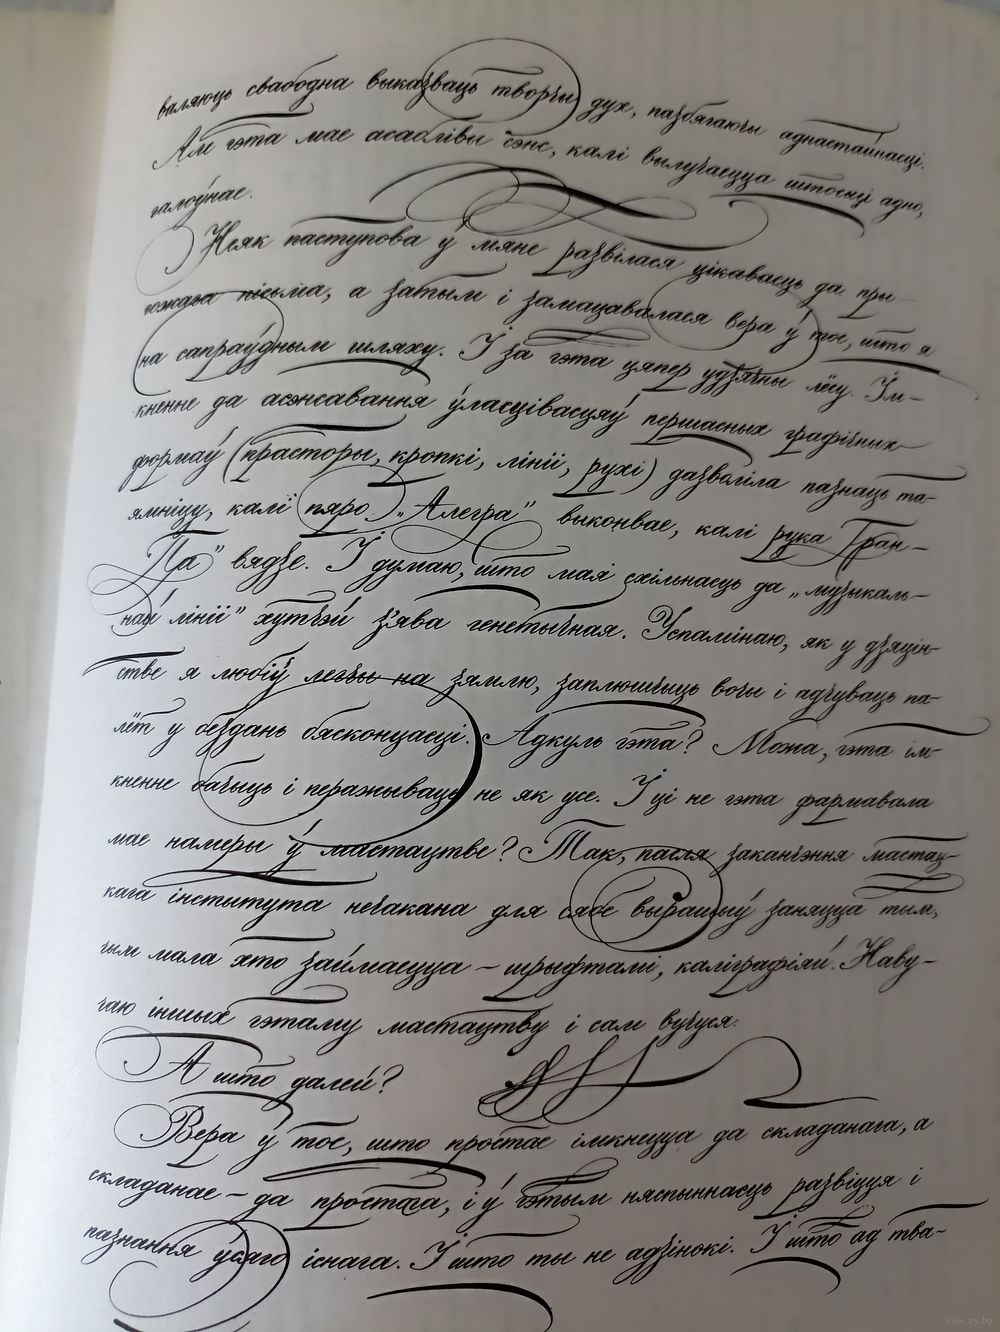 валяюць свабодна выказваць творчы дух, пазбягаючы аднастайнасці.
Але гэта мае асаблівы сэнс, калі вылучаецца штосьці адно,
галоўнае.
Неяк паступова ў мяне развілася цікавасць да пры-
гожага пісьма, а затым і замацавалася вера ў тое, што я
на сапраўдным шляху. І за гэта цяпер удзячны лёсу. Ім-
кненне да асэнсавання ўласцівасцяў першасных графічных
формаў (прасторы, кропкі, лініі, рухі) дазволіла пазнаць та-
ямніцу, калі пяро „Алегра" выконвае, калі рука „Гран-
Па" вядзе. І думаю, што мая схільнасць да „музыкаль-
най лініі" хутчэй з'ява генетычная. Успамінаю, як у дзяцін-
стве я любіў легчы на зямлю, заплюшчыць вочы і адчуваць па-
лёт у бездань бясконцасці. Адкуль гэта? Можа, гэта ім-
кненне бачыць і перажываць не як усе. І ці не гэта фармавала
мае намеры ў мастацтве? Так, пасля заканчэння мастац-
кага інстытута нечакана для сябе вырашыў заняцца тым,
чым мала хто займаецца – шрыфтамі, каліграфіяй. Наву-
чаю іншых гэтаму мастацтву і сам вучуся.
А што далей?
Вера ў тое, што простае імкнецца да складанага, а
складанае – да простага, і ў гэтым няспыннасць развіцця і
пазнання ўсяго існага. І што ты не адзінокі. І што ад тва-
www.ay.by